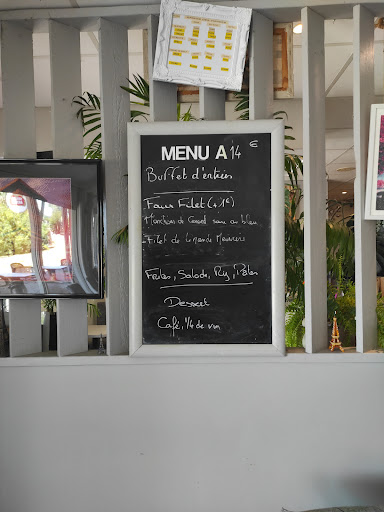 MENU A 14 €
Buffet d'entrées
Faux Filet (+1€)
Manchons de Canard sauce au bleu
- Filet de Limande Meunière
Frites, Salade, Riz, Pâtes
Dessert
Café, 1/4 de vin